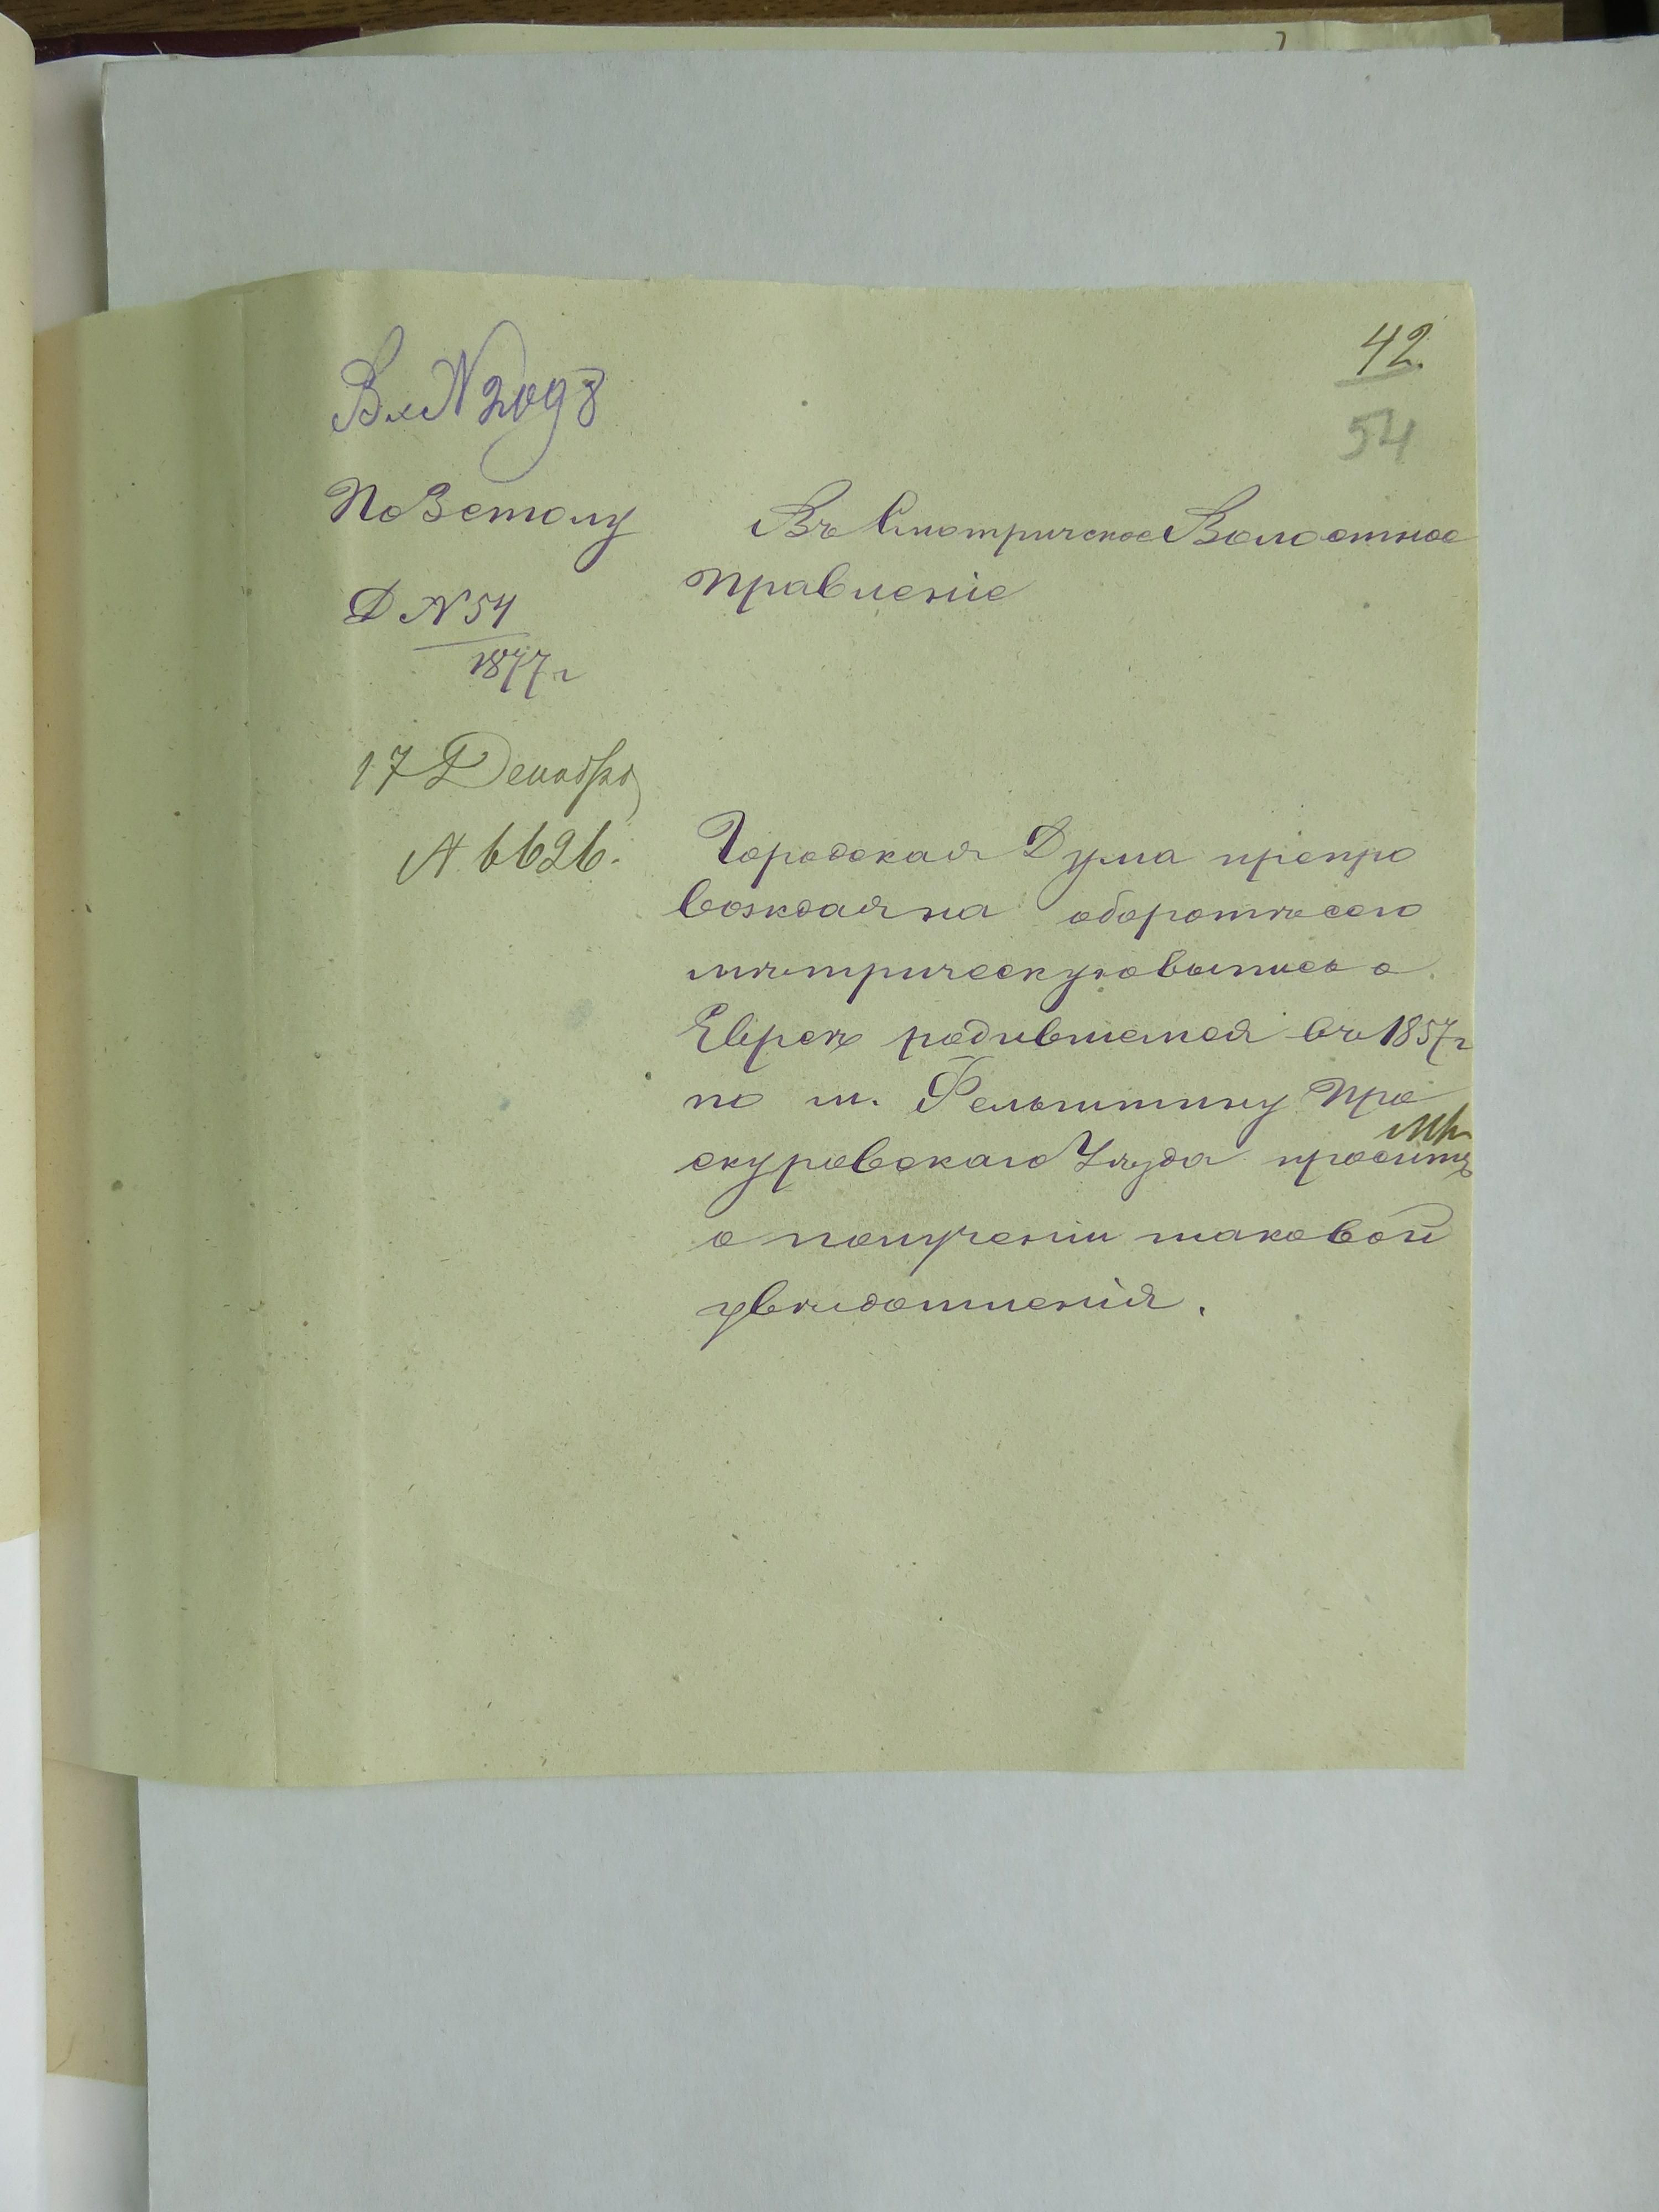 42.
54
Вх N 2098
По 3 столу
Д N 54
1877 г
17 Декабря
N. 6626.
Въ Смотричское Волостное
Правленіе
Городская Дума препро
вождая на оборотѣ сего
мѣтрическую выпись о
Евреѣ родившемся въ 1857 г
по м. Фельштину Про
скуровскаго Уѣзда проситъ
о полученіи таковой
увѣдомленія.